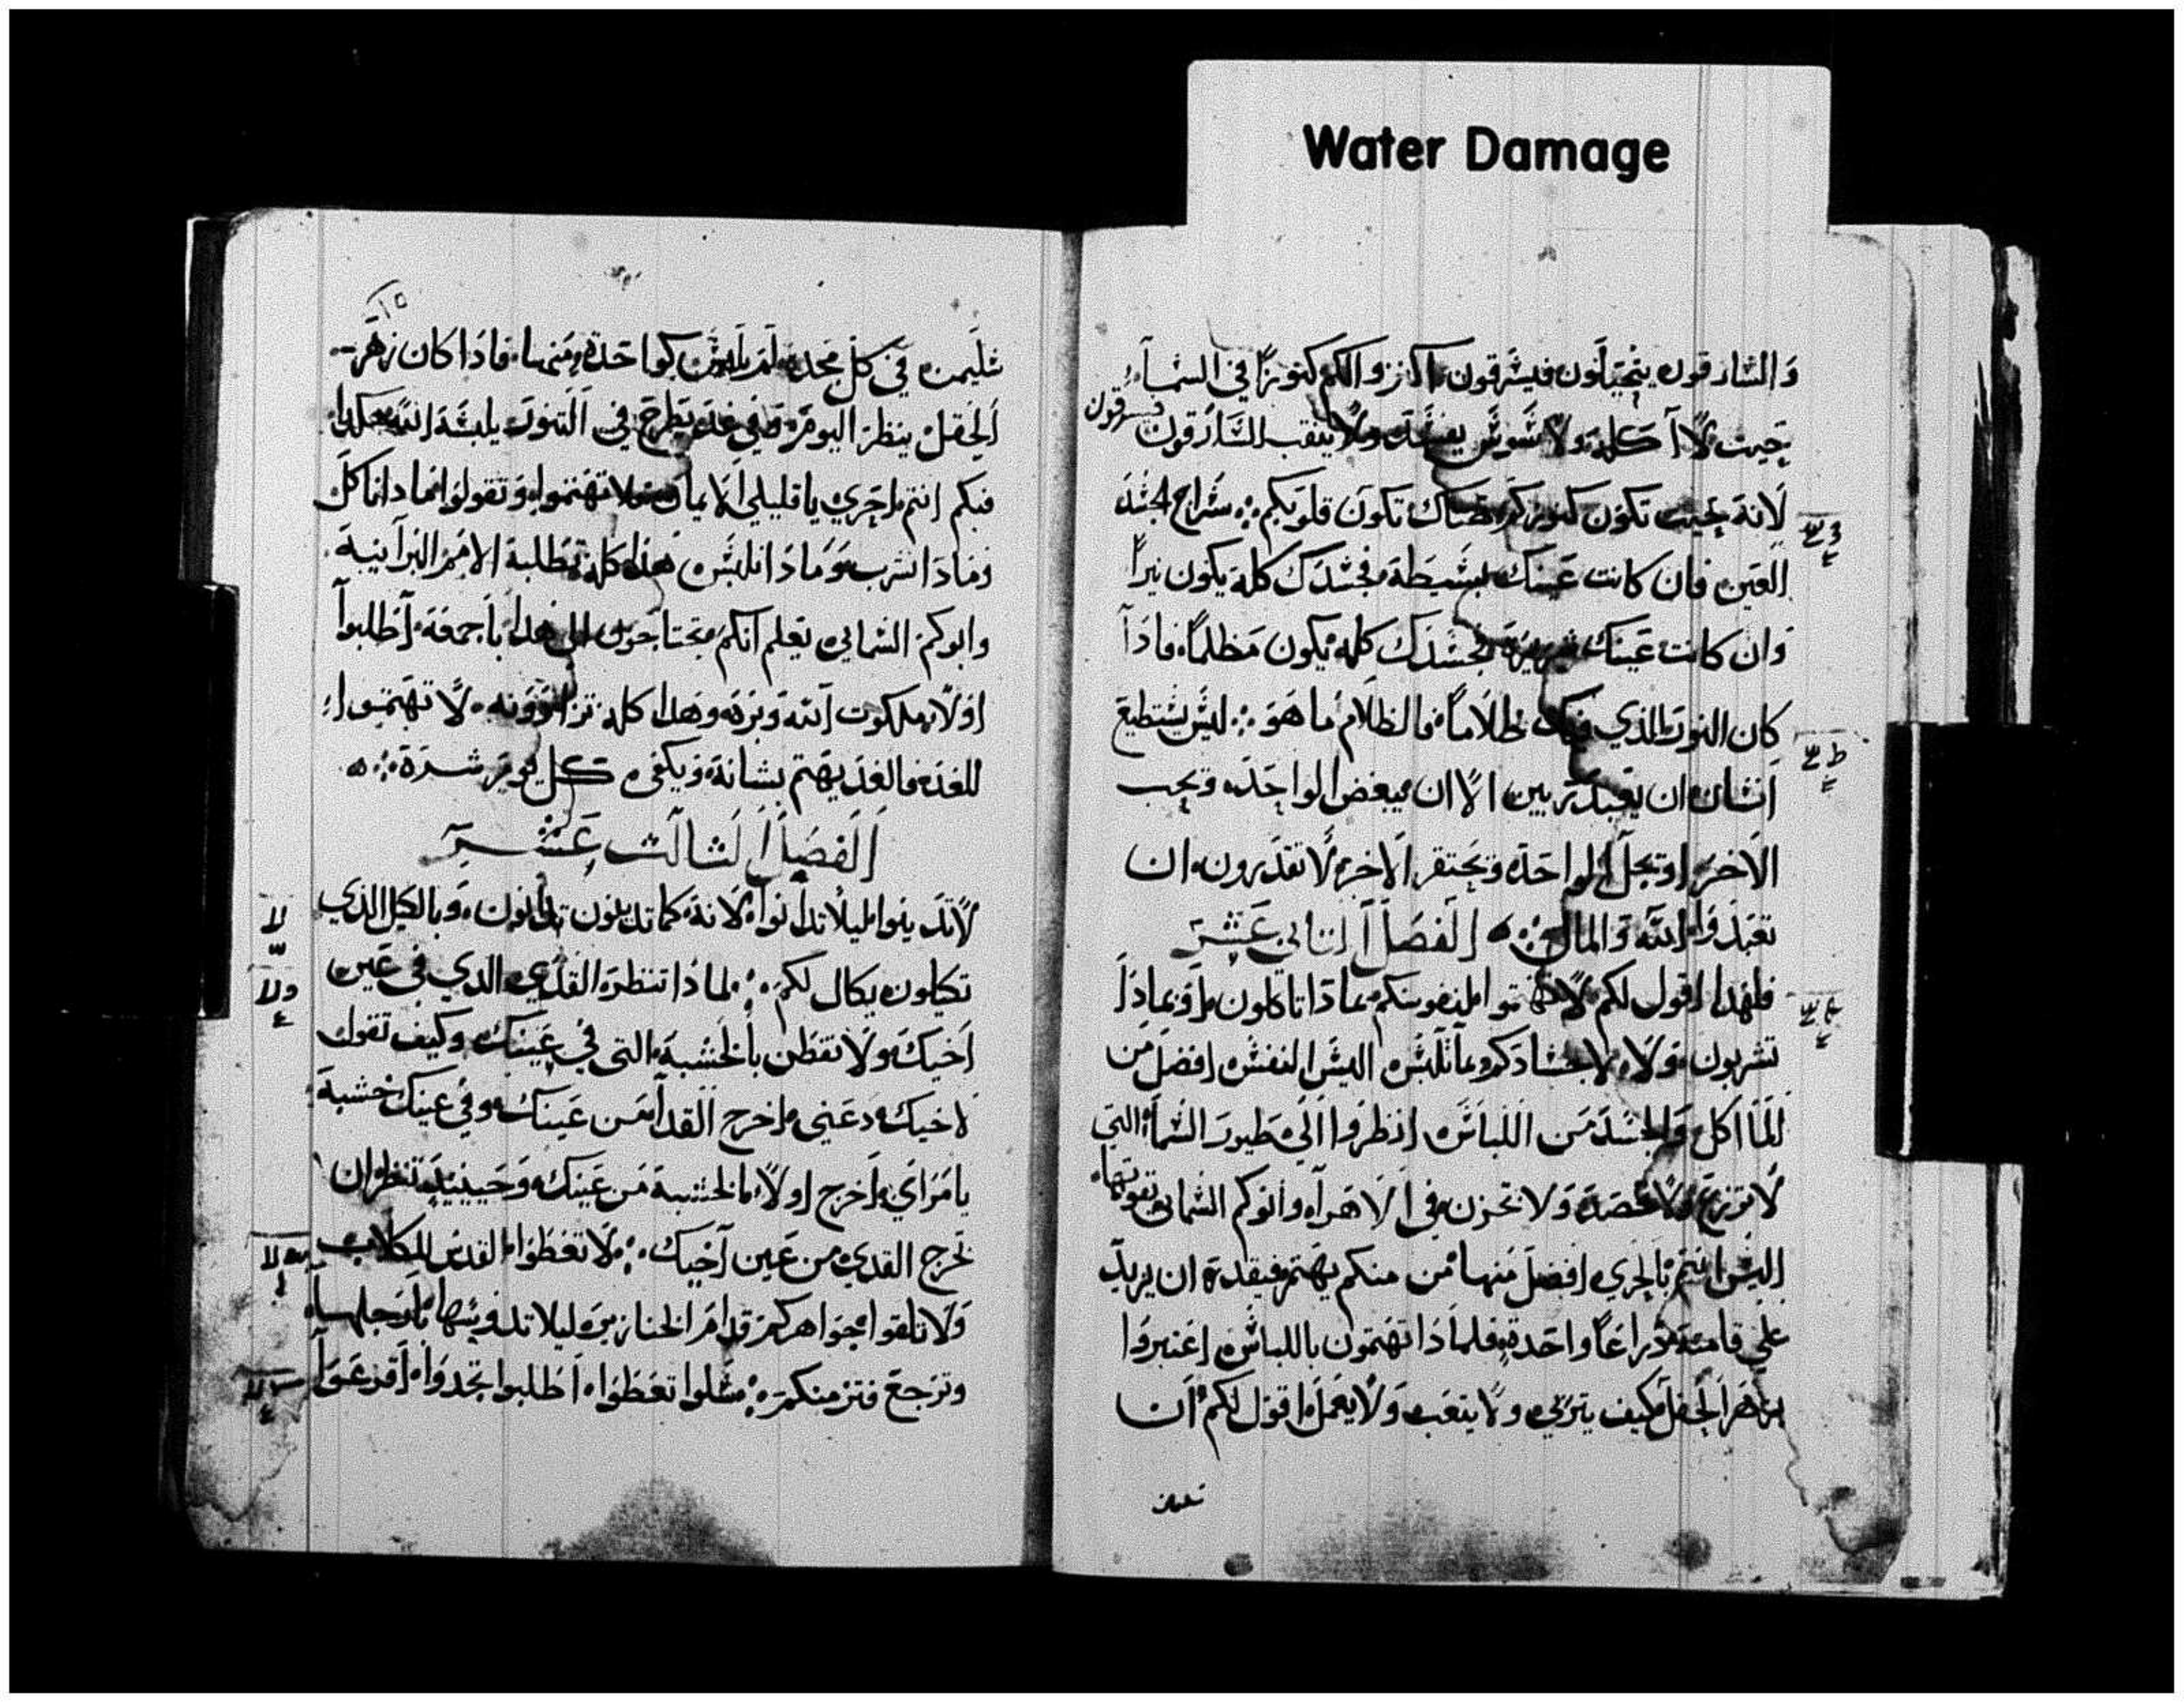 Water Damage
وَالشارقون يتحيّلون فيشرقون اكنزوا لكم كنوزًا في الشماء
حيت لا آكلة ولا شوش يفشد ولا ينقب الشارقون فيسرقون
لانة حيت تكون كنوزكم هناك تكون قلوبكم ؞ شراج الجشد
العين فان كانت عينك بشيطة فجشدك كله يكون نيرًا
وان كانت عينك شريرة فجشدك كله يكون مظلمًا فاذا
كان النور الذي فيك ظلامًا فالظلام ما هو ؞ ليش يشتطيع
انشان ان يعبد ربين الا ان يبغض الواحد ويحب
الاخر او يجل الواحد ويحتقر الاخر لا تقدرون ان
تعبدوا الله والمال ؞ الفصل الثاني عشر
فلهدا اقول لكم لا تهتموا لنفوشكم بماذا تاكلون او بماذا
تشربون ولا لاجشادكم بما تلبش اليش النفش افضل من
الماكل والجشد من اللباش انظروا الي طيور الشماء التي
لا تزرع ولا تحصد ولا تخزن في الاهراء وابوكم الشمائي يقوتها
اليش انتم بالحري افضل منها من منكم يهتم فيقدر ان يزيد
علي قامته ذراعًا واحدة فلماذا تهتمون باللباش اعتبروا
بزهر الحقل كيف يتربي ولا يتعب ولا يعمل اقول لكم ان
شليمن
١٥
شليمن في كل مجده لم يلبش كواحدة منها فاذا كان زهر
الحقل ينظر اليوم وفي غد يطرح في التنور يلبشه الله هكدا
فبكم انتم احري يا قليلي الايمان فلا تهتموا وتقولوا ماذا ناكل
وماذا نشرب وماذا نلبش هذا كله تطلبة الامم البرانية
وابوكم الشمائي يعلم انكم تحتاجون الي هدا باجمعة اطلبوا
اولًا ملكوت الله وبره وهدا كله تزادونه لا تهتموا
للغد فالغد يهتم بشانة ويكفي كل يوم شره ؞
الفصل الثالث عشر
لا تدينوا ليلا تدانوا لانة كما تدينون تدانون وبالكيل الذي
تكيلون يكال لكم ؞ لماذا تنظر القدي الدي في عين
اخيك ولا تفطن بالخشبة التي في عينك وكيف تقول
لاخيك دعني اخرج القدا من عينك وفي عينك خشبة
يا مراي اخرج اولًا الخشبة من عينك وحينيد تنظر ان
تخرج القدي من عين اخيك ؞ لا تعطوا القدش للكلاب
ولا تلقوا جواهركم قدام الخنازير ليلا تدوشها بارجلها
وترجع فتزمنكم ؞ شلوا تعطوا اطلبوا تجدوا اقرعوا